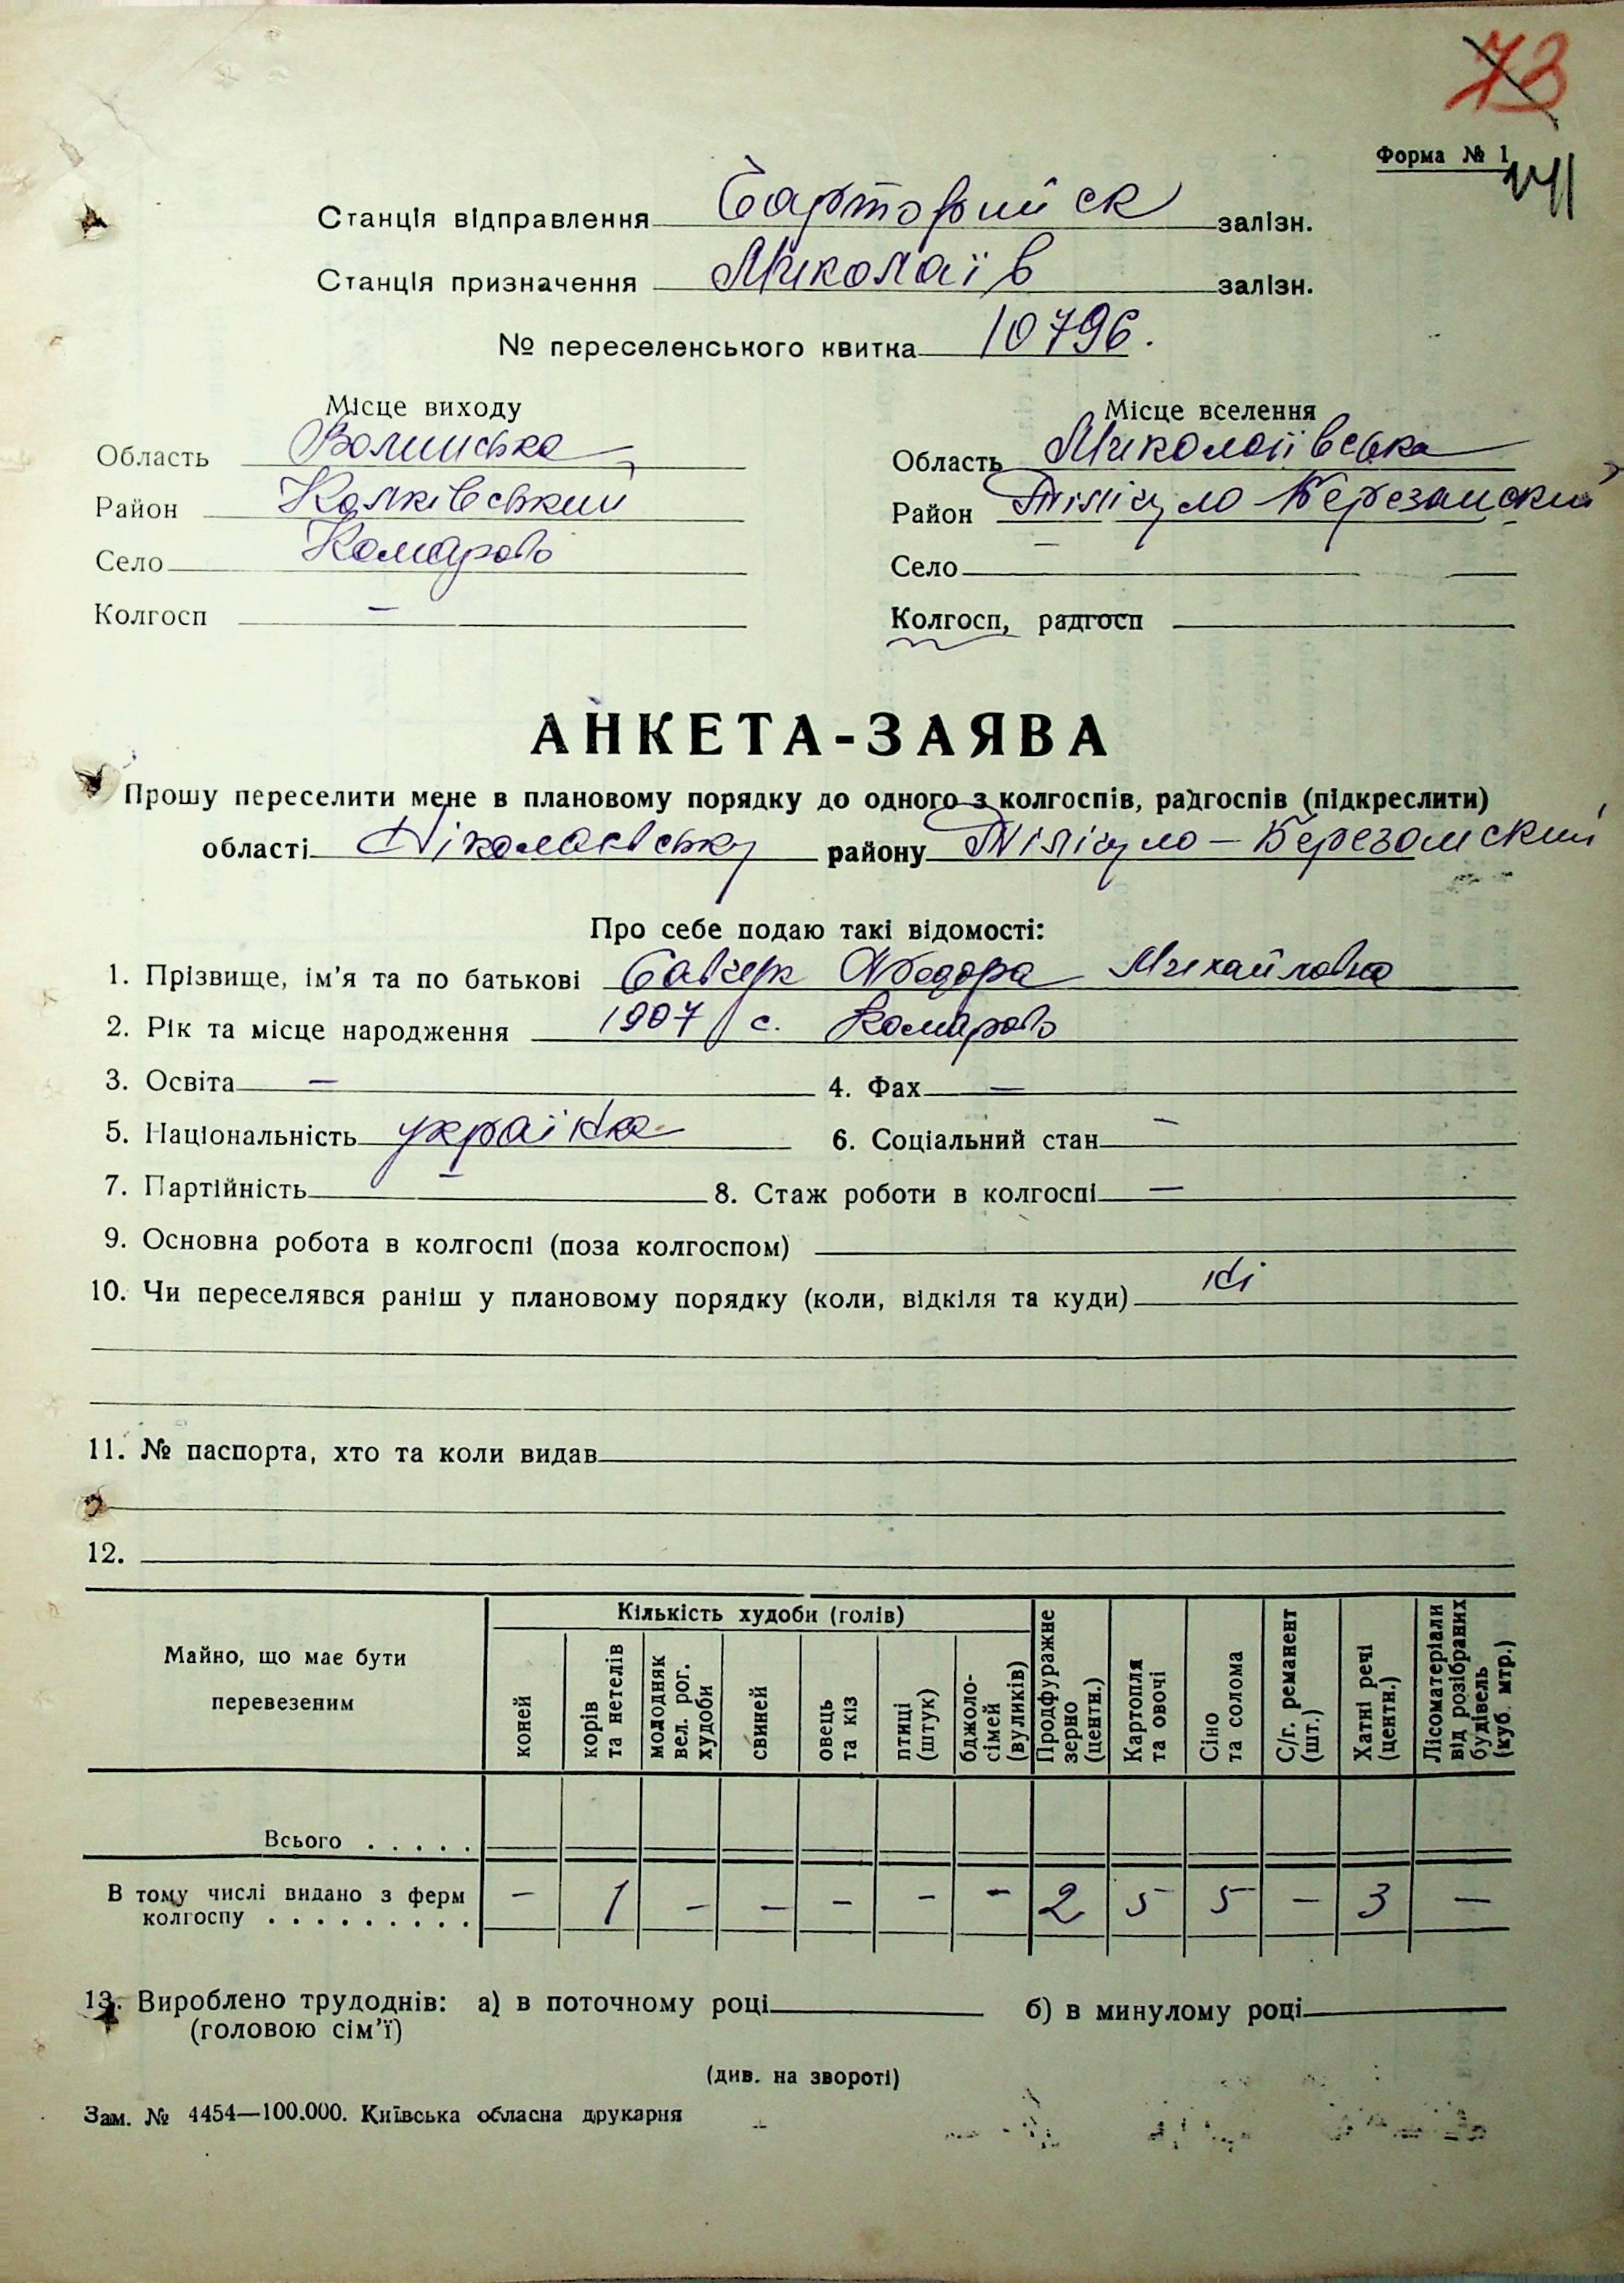 73
Форма № 1
Станція відправлення Чарторийськ залізн.
Станція призначення Миколаїв залізн.
№ переселенського квитка 10796.
Місце виходу Місце вселення
Область Волинська Область Миколаївська
Район Колківський Район Тілігуло-Березанский
Село Комарово Село —
Колгосп — Колгосп, радгосп
АНКЕТА-ЗАЯВА
Прошу переселити мене в плановому порядку до одного з колгоспів, радгоспів (підкреслити)
області Ніколаєвську району Тілігуло-Березанский
Про себе подаю такі відомості:
1. Прізвище, ім'я та по батькові Федора Михайловна
2. Рік та місце народження 1907 с. Комарово
3. Освіта — 4. Фах —
5. Національність українка 6. Соціальний стан —
7. Партійність — 8. Стаж роботи в колгоспі —
9. Основна робота в колгоспі (поза колгоспом)
10. Чи переселявся раніш у плановому порядку (коли, відкіля та куди) ні
11. № паспорта, хто та коли видав
12.
Майно, що має бути перевезеним
Кількість худоби (голів)
коней
корів та нетелів
молодняк вел. рог. худоби
свиней
овець та кіз
птиці (штук)
бджоло-сімей (вуликів)
Продфуражне зерно (центн.)
Картопля та овочі
Сіно та солома
С/г. реманент (шт.)
Хатні речі (центн.)
Лісоматеріали від розібраних будівель (куб. мтр.)
Всього . . . . .
В тому числі видано з ферм колгоспу . . . . . . . . . — 1 — — — — — 2 5 5 — 3 —
13. Вироблено трудоднів: а) в поточному році б) в минулому році
(головою сім'ї)
(див. на звороті)
Зам. № 4454—100.000. Київська обласна друкарня